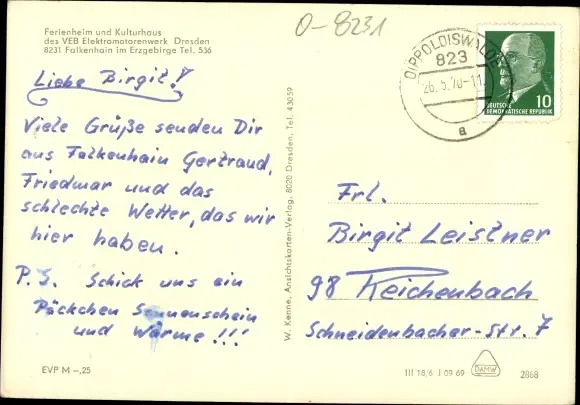 Ferienheim und Kulturhaus
des VEB Elektromotorenwerk Dresden
8231 Falkenhain im Erzgebirge Tel. 536
O-8231
DIPPOLDISWALDE
823
26.5.70-11
a
DEUTSCHE
DEMOKRATISCHE REPUBLIK
10
Liebe Birgit!
Viele Grüße senden Dir
aus Falkenhain Gertraud,
Friedmar und das
schlechte Wetter, das wir
hier haben.
P.S. Schick uns ein
Päckchen Sonnenschein
und Wärme!!!
W. Kenne, Ansichtskarten-Verlag, 8020 Dresden, Tel. 43059
Frl.
Birgit Leistner
98 Reichenbach
Schneidenbacher-Str. 7
EVP M -,25
III 18/6 J 09 69
DAMW
2868